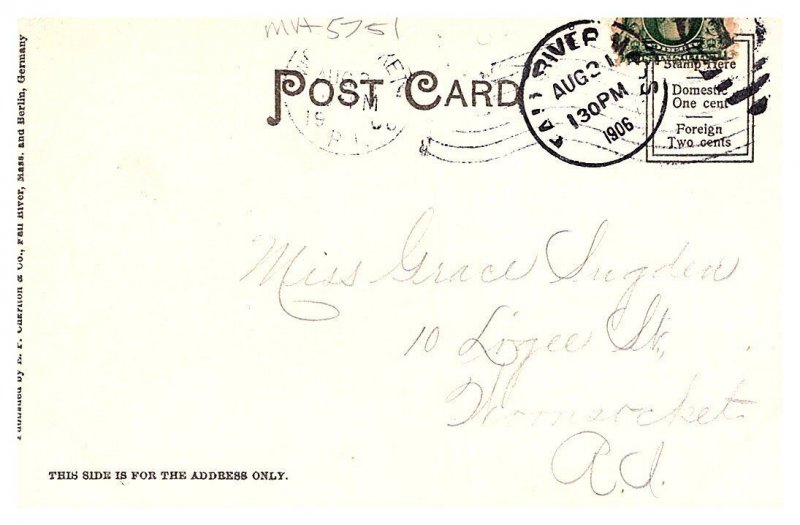 MVA-5751
POST CARD
FALL RIVER MASS
AUG 21
130PM
1906
AUG
M
R.I.
Stamp Here
Domestic
One cent
Foreign
Two cents
Miss Grace Sugden
10 Logee St,
Woonsocket
R.I.
THIS SIDE IS FOR THE ADDRESS ONLY.
Published by E. P. Charlton & Co., Fall River, Mass. and Berlin, Germany